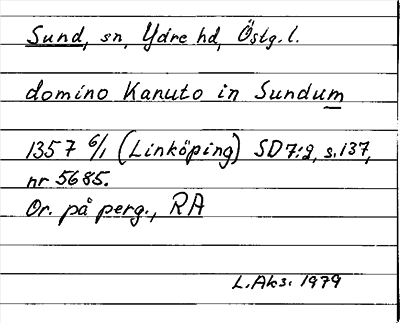 Sund, sn, Ydre hd, Östg. l.
domino Kanuto in Sundum
1357 6/1 (Linköping) SD 7:2, s. 137,
nr 5685.
Or. på perg., RA
L. Aks. 1979